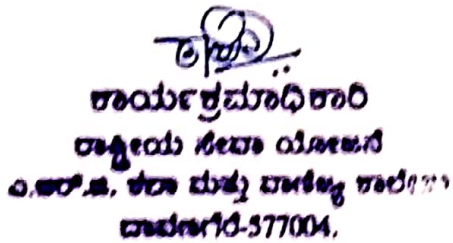 ಕಾರ್ಯಕ್ರಮಾಧಿಕಾರಿ
ರಾಷ್ಟ್ರೀಯ ಸೇವಾ ಯೋಜನೆ
ಎ.ಆರ್.ಜಿ. ಕಲಾ ಮತ್ತು ವಾಣಿಜ್ಯ ಕಾಲೇಜು
ದಾವಣಗೆರೆ-577004.